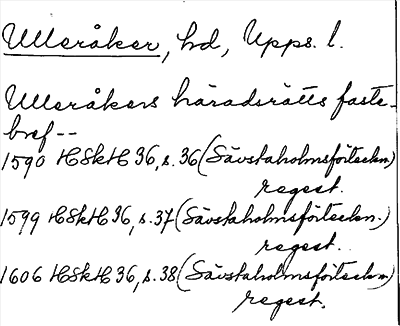 Ulleråker, hd, Upps. l.
Ulleråkers häradsrätts faste-
bref--
1590 HSkH 36, s. 36 (Sävstaholmsförteckn.)
regest.
1599 HSkH 36, s. 37 (Sävstaholmsförteckn.)
regest.
1606 HSkH 36, s. 38 (Sävstaholmsförteckn.)
regest.